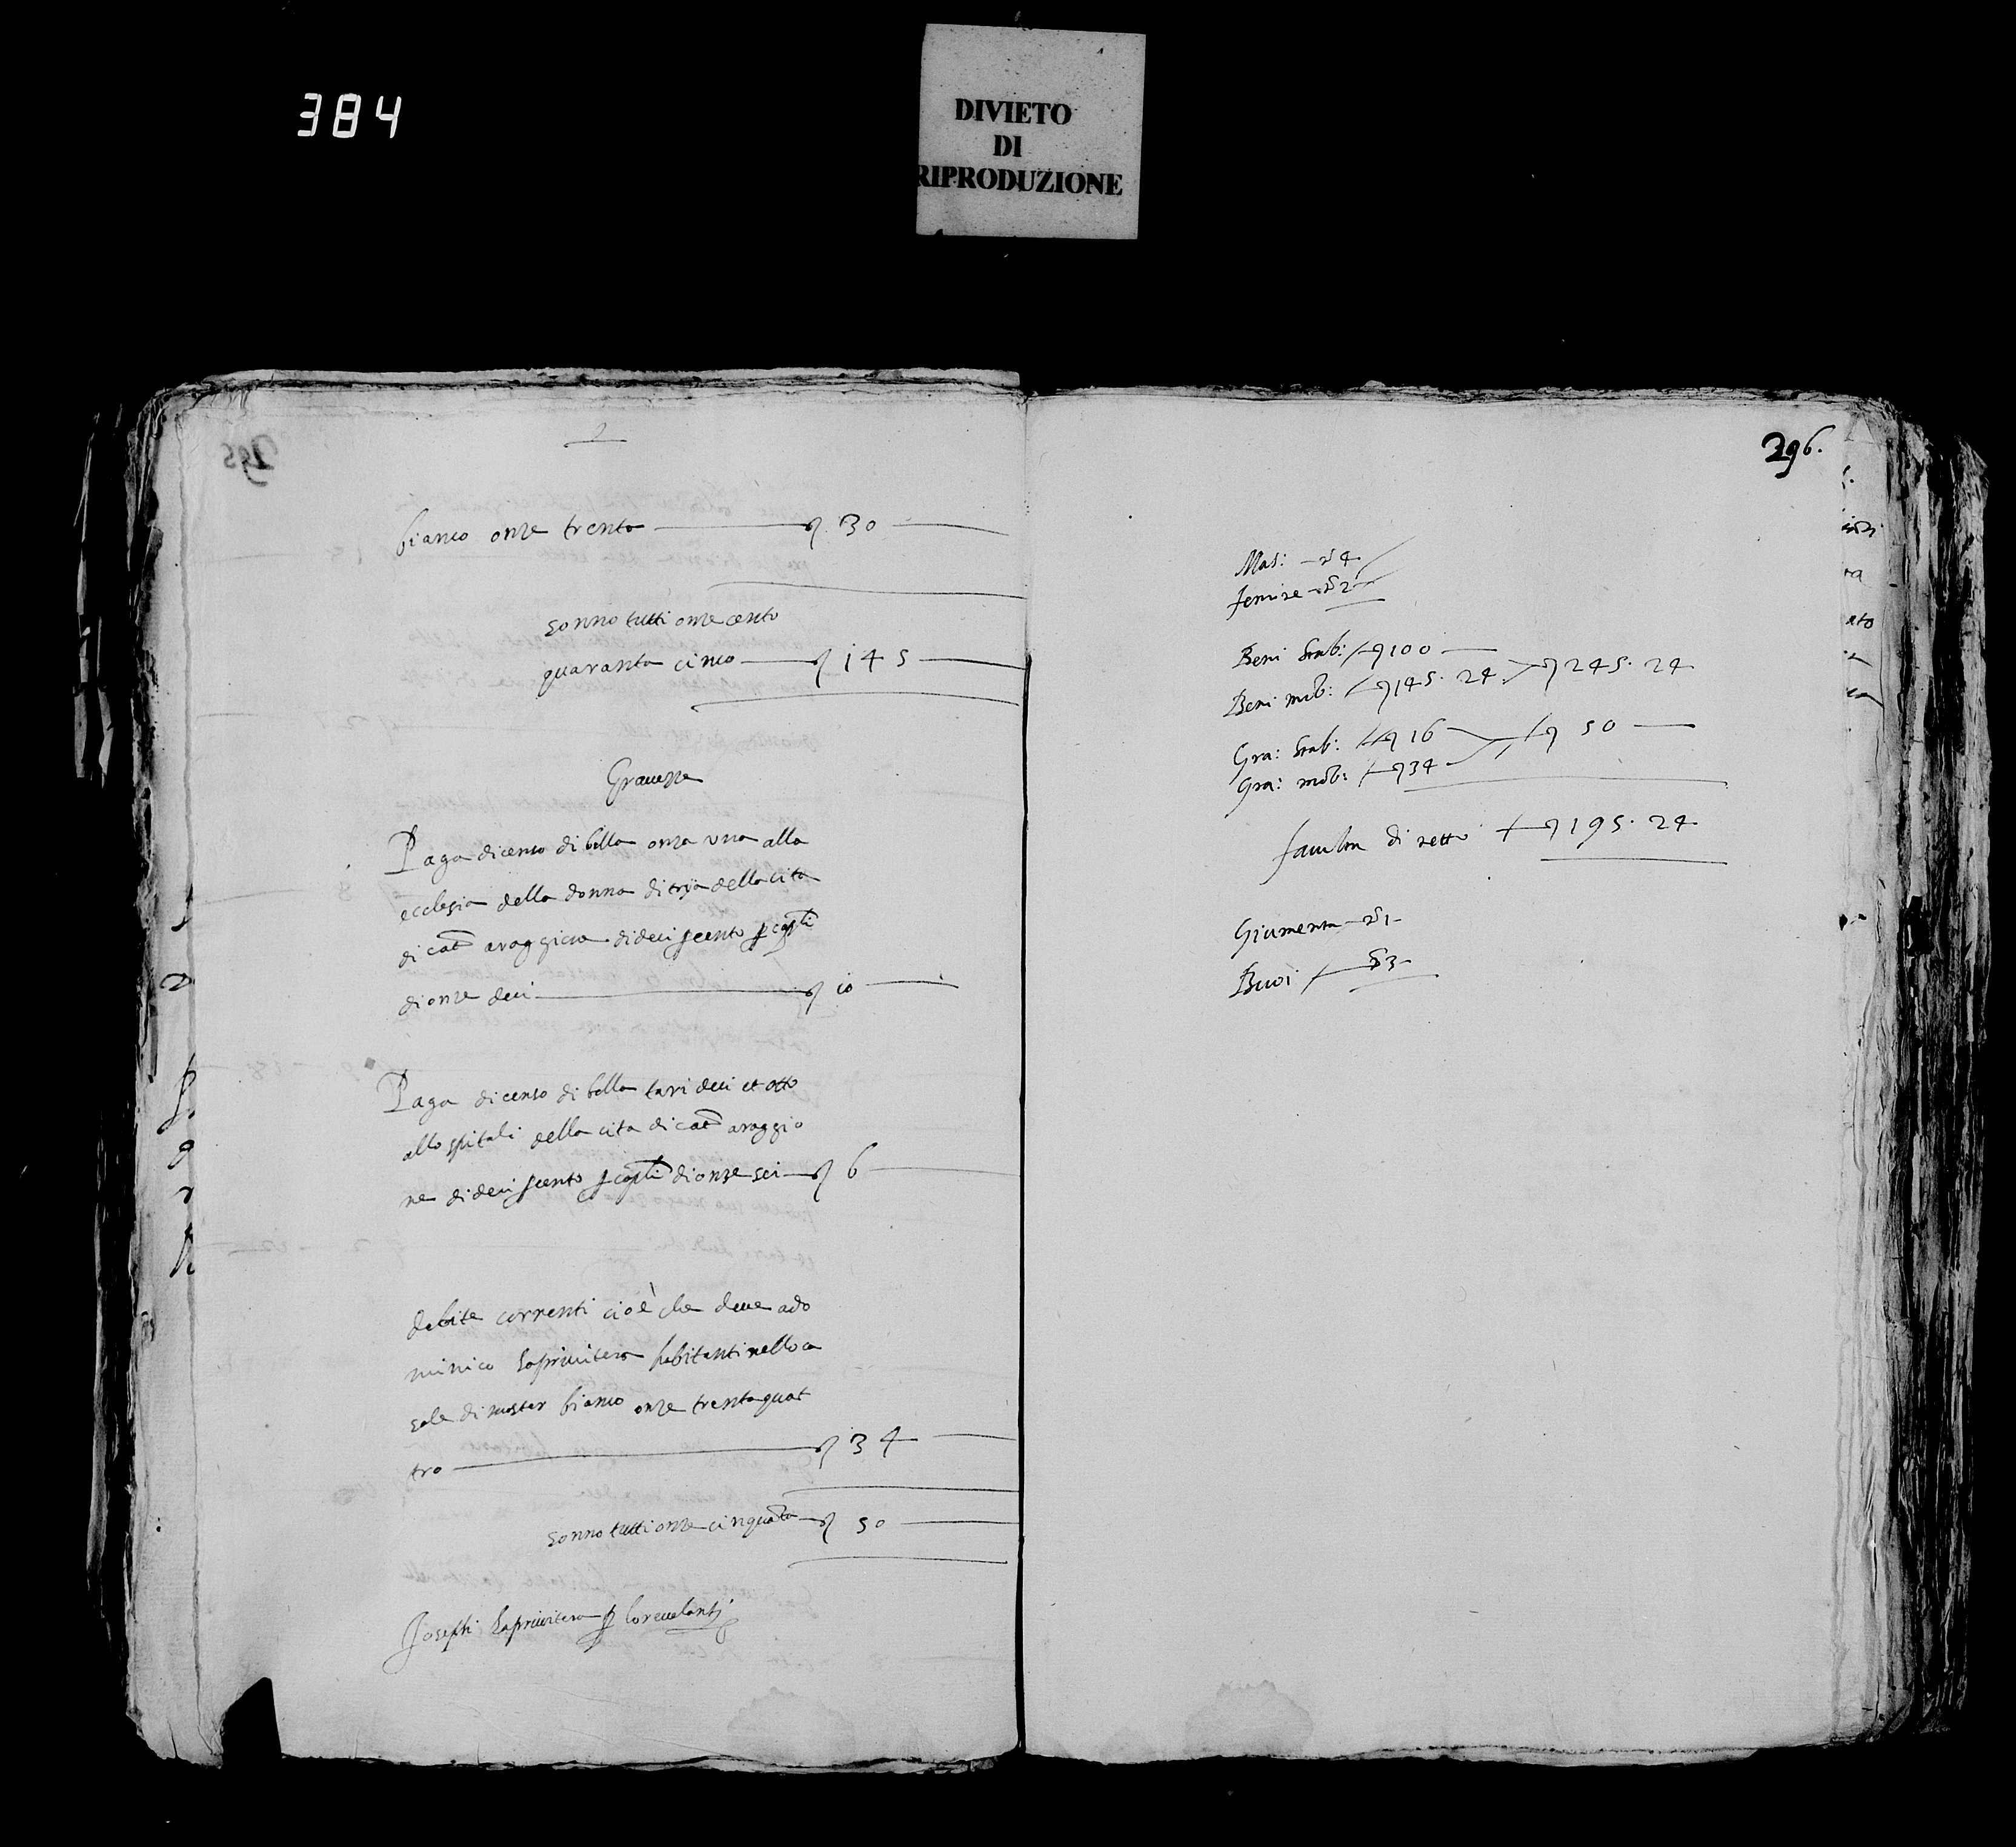 384
DIVIETO
DI
RIPRODUZIONE
295
bianco onze trenta 30
sonno tutti onze cento
quaranta cinco 145
Gravezze
Paga di censo di bolla onza una alla
ecclesia della donna di trya della cita
di cat araggiona di deci per cento
di onze deci 10
Paga di censo di bolla tari deci et otto
allo spitali della cita di cat araggio
ne di deci per cento di onze sei 6
debite correnti cioè che deve a do
minico Laprivitera habitanti nello ca
sale di mister bianco onze trenta quat
tro 34
sonno tutti onze cinquanta 50
Josephi Laprivitera
296.
Mas: 4
femine 2
Beni stab: 100
Beni mob: 145. 24 245. 24
Gra: stab: 16 50
Gra: mob: 34
di netto 195. 24
Giumenta 1
Buoi 3